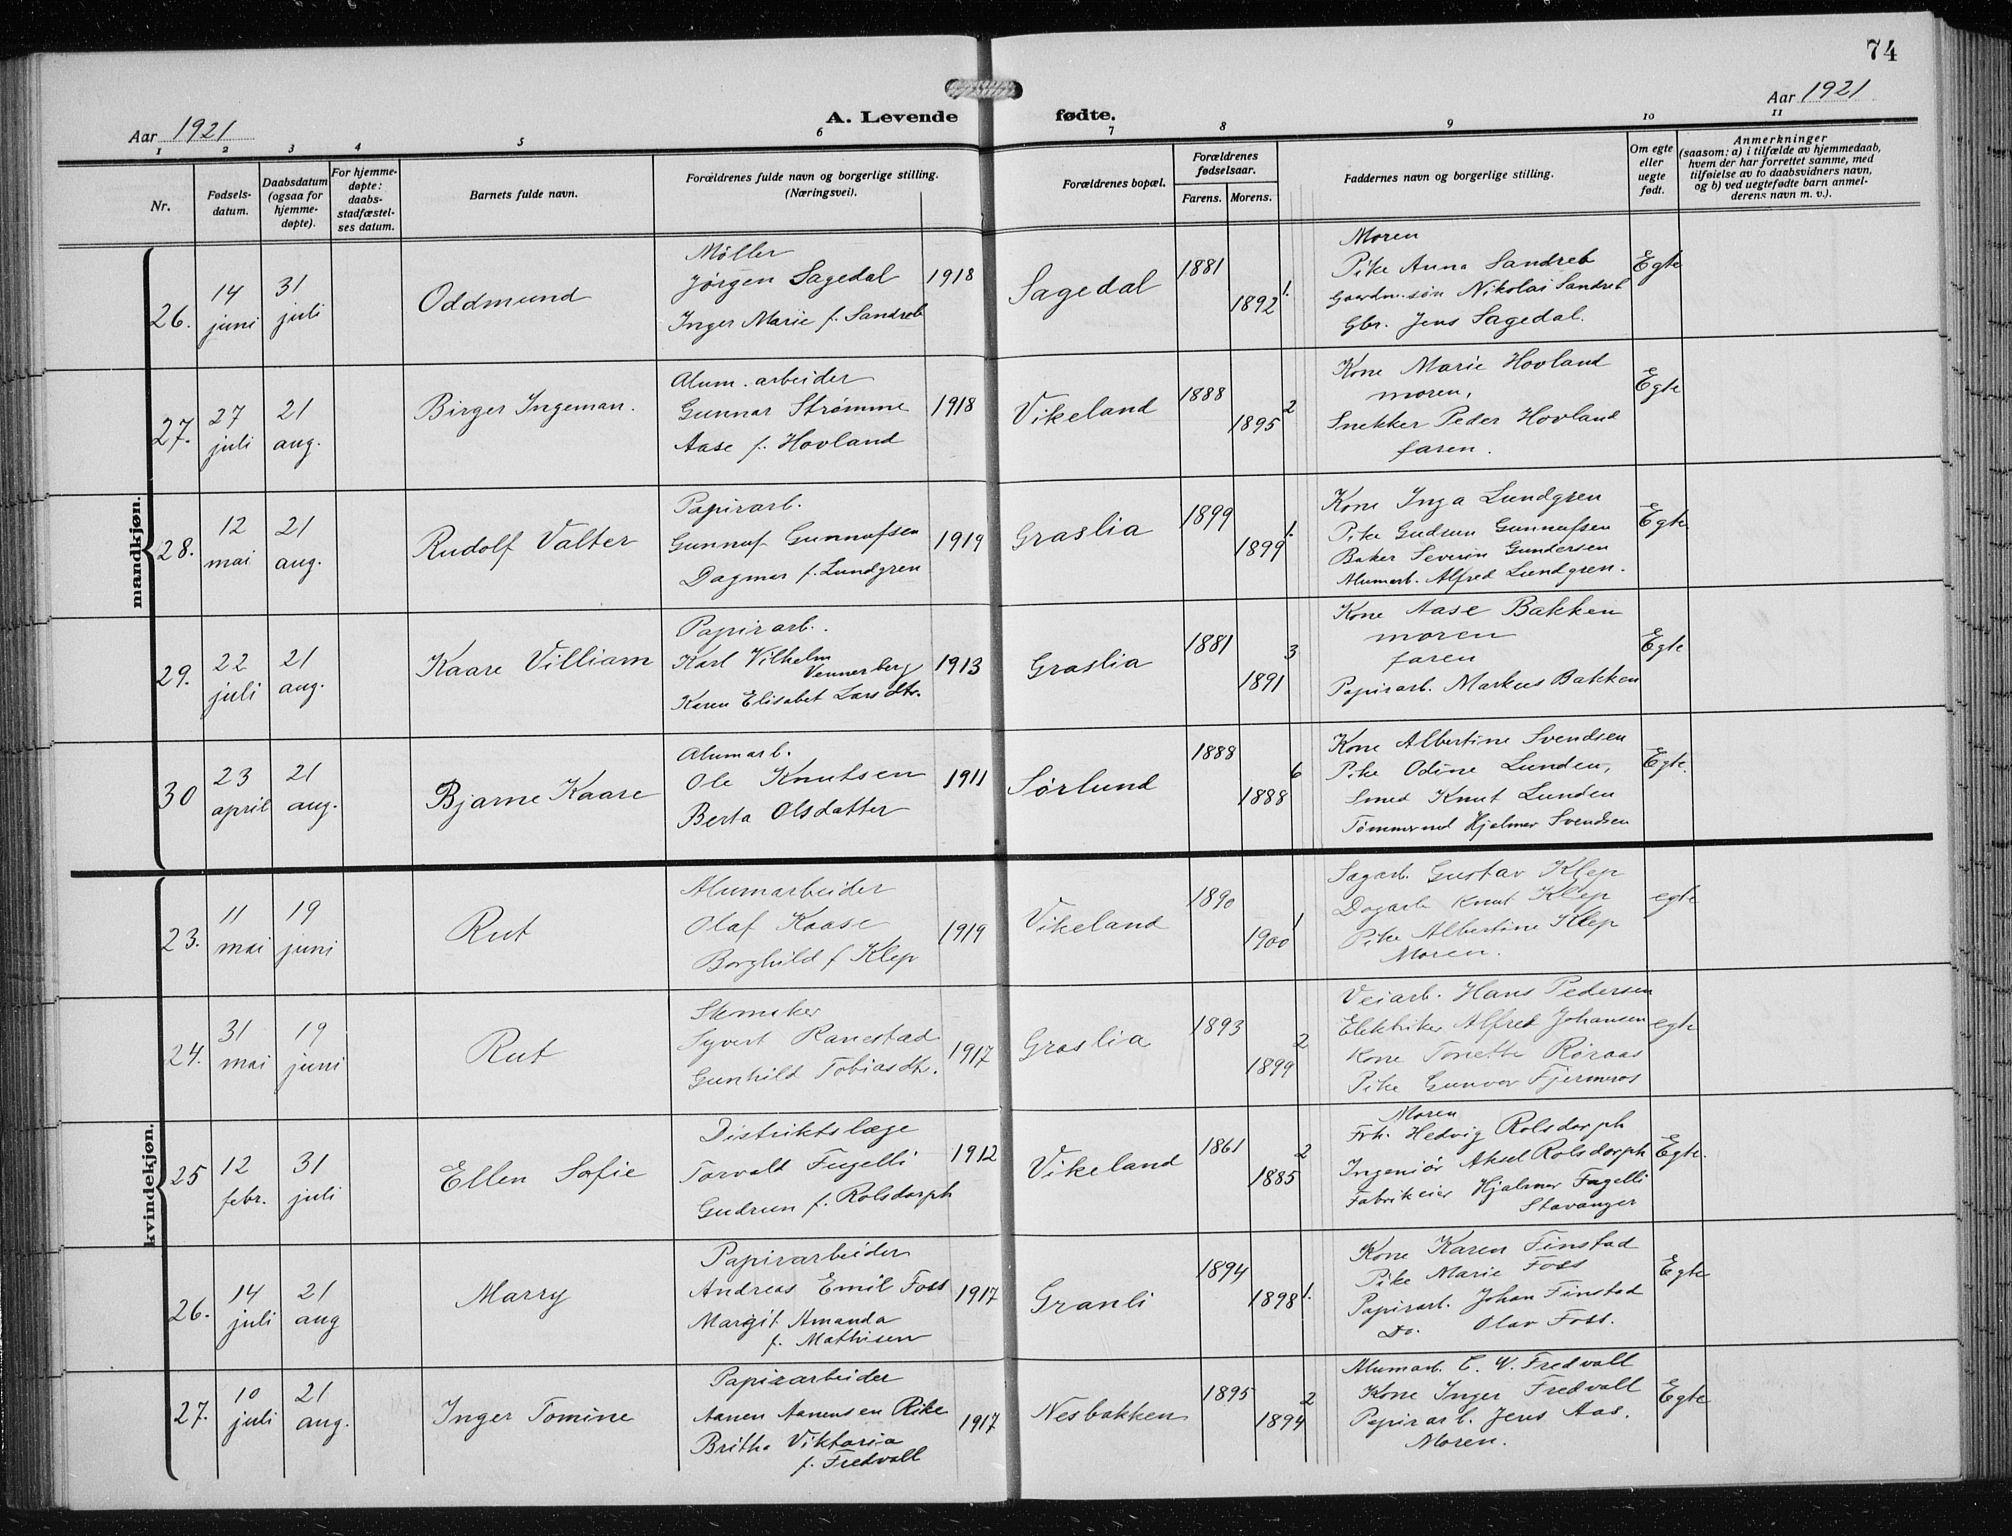 74
Aar 1921
A. Levende fødte.
Aar 1921
1 2 3 4 5 6 7 8 9 10 11
Nr.
Fødsels-
datum.
Daabsdatum
(ogsaa for
hjemme-
døpte).
For hjemme-
døpte:
daabs-
stadfæstel-
ses datum.
Barnets fulde navn.
Forældrenes fulde navn og borgerlige stilling.
(Næringsvei).
Forældrenes bopæl.
Forældrenes
fødselsaar.
Farens. Morens.
Faddernes navn og borgerlige stilling.
Om egte
eller
uegte
født.
Anmerkninger
(saasom: a) i tilfælde av hjemmedaab,
hvem der har forrettet samme, med
tilføielse av to daabsvidners navn,
og b) ved uegtefødte barn anmel-
derens navn m. v.).
mandkjøn.
26.
14
juni
31
juli
Oddmund
Møller
Jørgen Sagedal
Inger Marie f. Sandreb
1918
Sagedal
1881
1892
1.
Moren
Pike Anna Sandreb
Gaardm. søn Nikolai Sandreb
Gbr. Jens Sagedal.
Egte
27.
27
juli
21
aug.
Birger Ingeman.
Alum. arbeider
Gunnar Strømme
Aase f. Hovland
1918
Vikeland
1888
1895
2
Kone Marie Hovland
moren,
Snekker Peder Hovland
faren.
Egte
28.
12
mai
21
aug.
Rudolf Valter
Papirarb.
Gunnuf Gunnufsen
Dagmar f. Lundgren
1919
Graslia
1899
1899
1.
Kone Inga Lundgren
Pike Gudrun Gunnufsen
Baker Severin Gundersen
Alumarb. Alfred Lundgren.
Egte
29.
22
juli
21
aug.
Kaare Villiam
Papirarb.
Karl Vilhelm
Vennerberg
Karen Elisabet Larsdtr.
1913
Graslia
1881
1891
3
Kone Aase Bakken
moren
faren
Papirarb. Markus Bakken
Egte
30
23
april
21
aug.
Bjarne Kaare
Alumarb.
Ole Knutsen
Berta Olsdatter
1911
Sørlund
1888
1888
6
Kone Albertine Svendsen
Pike Odine Lunden,
Smed Knut Lunden
Tømmermd Hjalmar Svendsen
Egte.
kvindekjøn.
23.
11
mai
19
juni
Rut
Alumarbeider
Olaf Kaase
Borghild f Klep
1919
Vikeland
1890
1900
1
Sagarb. Gustav Klep
Dagarb Knut Klep
Pike Albertine Klep
Moren.
egte
24.
31
mai
19
juni
Rut
Skomaker
Syvert Ranestad
Gunhild Tobiasdtr.
1917
Graslia
1893
1899
2
Veiarb. Hans Pedersen
Elektriker Alfred Johansen
Kone Tonette Røraas
Pike Gunvor Fjermeros
egte
25
12
febr.
31
juli
Ellen Sofie
Distriktslæge
Torvald Fugelli
Gudrun f. Rolsdorph
1912
Vikeland
1861
1885
2
Moren
Frk. Hedvig Rolsdorph
Ingeniør Aksel Rolsdorph
Fabrikeier Hjalmar Fugelli
Stavanger
Egte.
26.
14
juli
21
aug
Marry
Papirarbeider
Andreas Emil Foss
Margit Amanda
f. Mathisen
1917
Granli
1894
1898
1.
Kone Karen Finstad
Pike Marie Foss
Papirarb. Johan Finstad
Do. Olav Foss.
Egte
27.
10
juli
21
aug.
Inger Tomine
Papirarbeider
Aanen Aanensen Rike
Britha Viktoria
f. Fredvall
1917
Nesbakken
1895
1894
2
Alumarb. C. V. Fredvall
Kone Inger Fredvall
Papirarb. Jens Aas.
Moren.
Egte